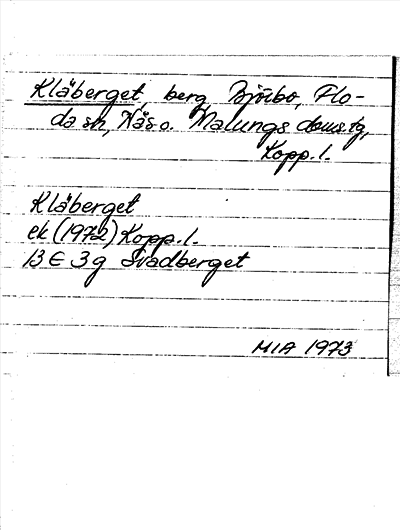 Kläberget, berg, Björbo, Flo-
da sn, Näs o. Malungs doms.tg,
Kopp.l.
Kläberget
ek (1972) Kopp.l.
13 E 3 g Svadberget
MIA 1973